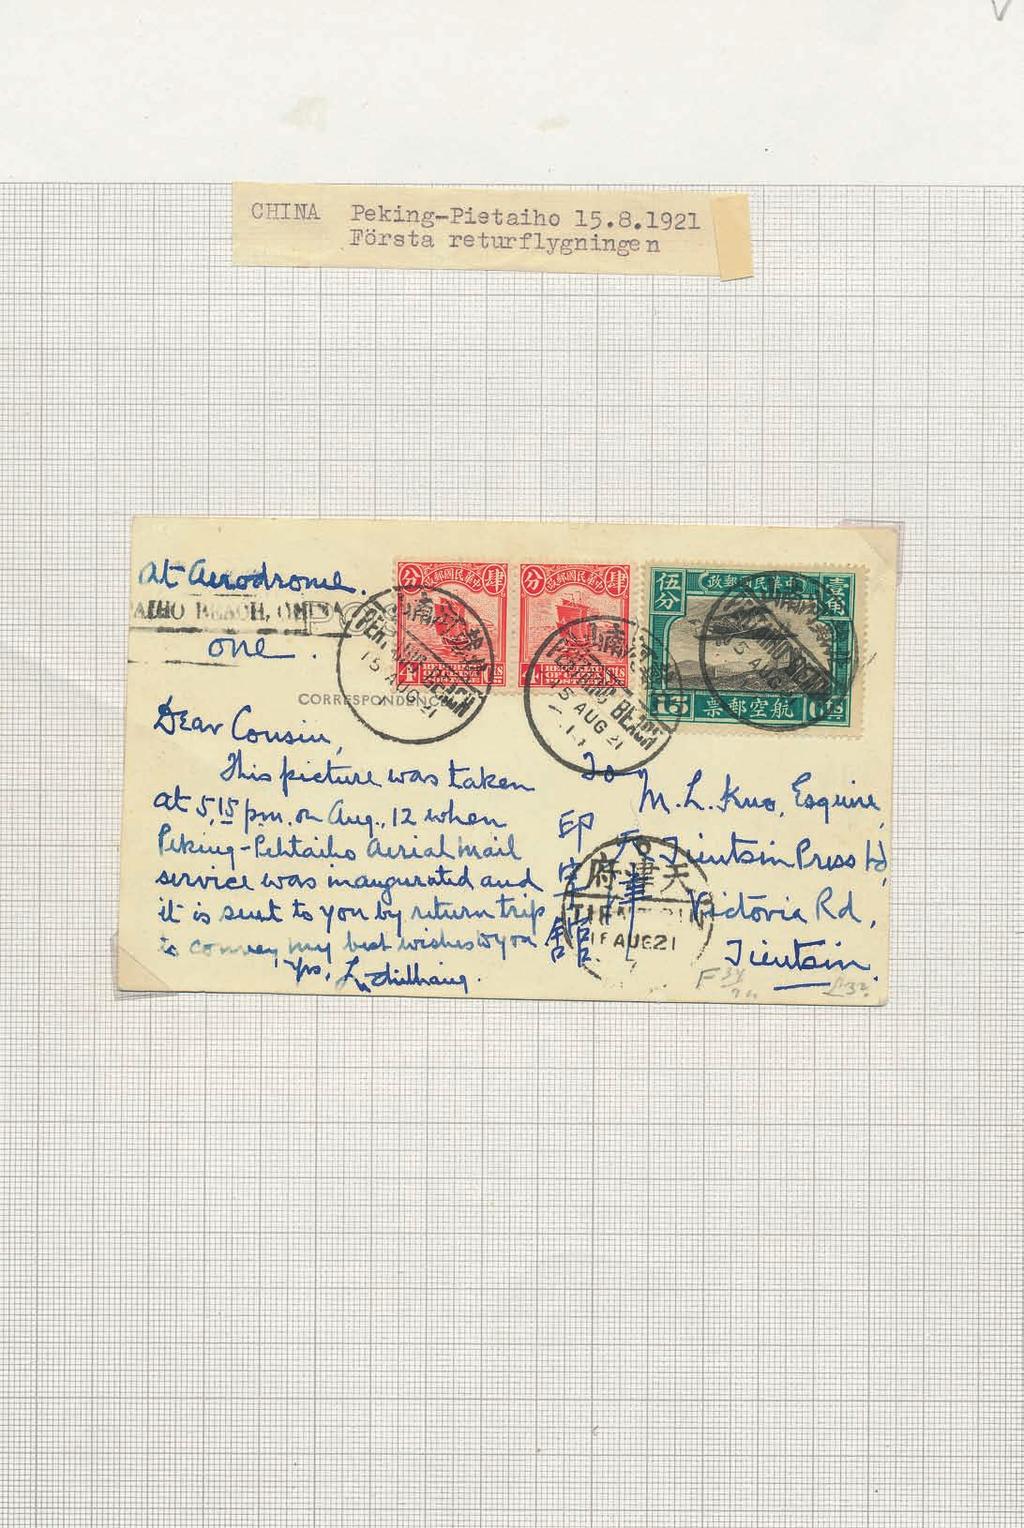 CHINA Peking-Pietaiho 15.8.1921
Första returflygningen
At Aerodrome.
AIHO BEACH, CHINA
one.
CORRESPONDENCE
Dear Cousin,
This picture was taken
at 5,15 pm. on Aug., 12 when
Peking-Pehtaiho Aerial Mail
service was inaugurated and
it is sent to you by return trip
to convey my best wishes to you
Yrs,
分 政郵國民華中 肆
4 CTS
分 政郵國民華中 肆
4 CTS
伍分 政郵國民華中 壹角
15 票郵空航
PEHTAIHO BEACH
15 AUG 21
PEHTAIHO BEACH
15 AUG 21
PEHTAIHO BEACH
15 AUG
To
M. L. Kuo, Esquire,
Tientsin Press Ld,
Victoria Rd,
Tientsin.
天
印字館
府津天
TIENTSIN
AUG 21